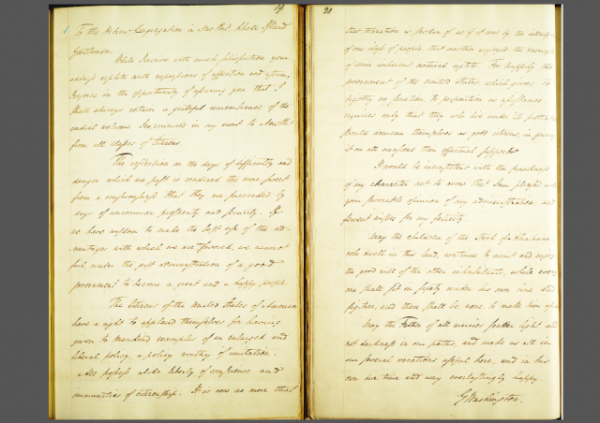 19
To the Hebrew Congregation in New Port Rhode Island
Gentlemen.
While I receive with much satisfaction your
address replete with expressions of affection and esteem,
I rejoice in the opportunity of assuring you that I
shall always retain a grateful remembrance of the
cordial welcome I experienced in my visit to New Port
from all classes of Citizens
The reflection on the days of difficulty and
danger which are past is rendered the more sweet
from a consciousness that they are succeeded by
days of uncommon prosperity and security. If
we have wisdom to make the best use of the ad-
vantages with which we are favored, we cannot
fail, under the just administration of a good
government to become a great and a happy people
The Citizens of the United States of America
have a right to applaud themselves for having
given to Mankind examples of an enlarged and
liberal policy, a policy worthy of imitation.
All possess alike liberty of conscience and
immunities of citizenship. It is now no more that
20
that toleration is spoken of as if it was by the indulgence
of one class of people, that another enjoyed the exercise
of their inherent natural rights. For happily the
government of the United States, which gives to
bigotry no sanction, to persecution no assistance
requires only that they who live under its protection
should demean themselves as good citizens, in giving
it on all occasions their effectual support
It would be inconsistent with the frankness
of my character not to avow that I am pleased with
your favorable opinion of my administration and
fervent wishes for my felicity.
May the children of the Stock of Abraham
who dwell in this land, continue to merit and enjoy
the good will of the other inhabitants, while every
one shall sit in safety under his own vine and
figtree, and there shall be none to make him afraid
May the Father of all mercies scatter light and
not darkness in our paths, and make us all in
our several vocations useful here, and in his
own due time and way everlastingly happy
G Washington.